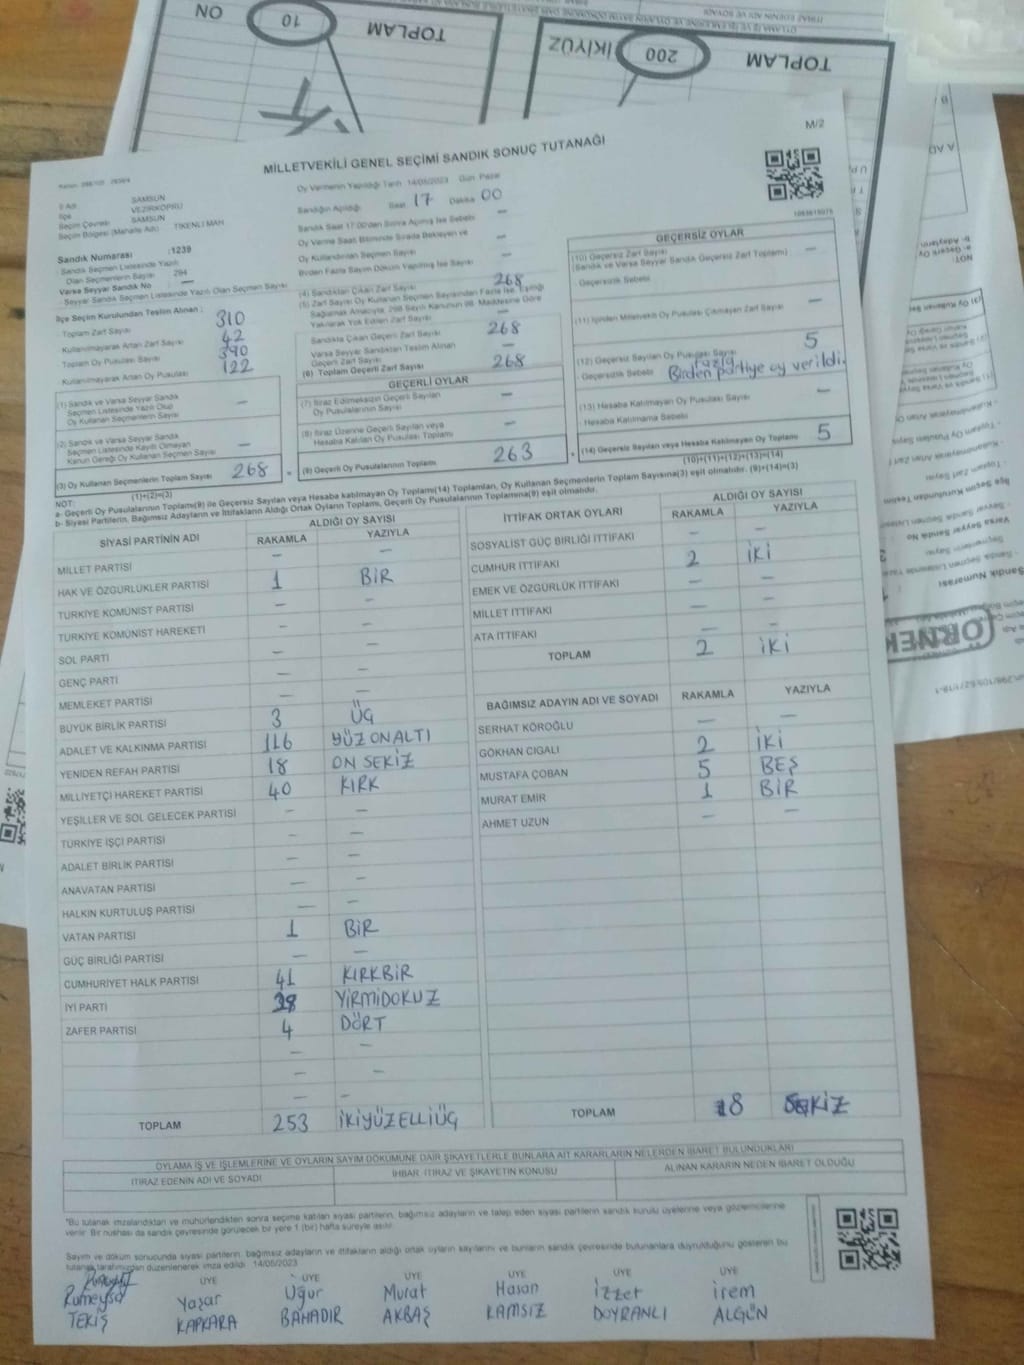 ON
10
TOPLAM
İKİYÜZ
200
TOPLAM
M/2
MİLLETVEKİLİ GENEL SEÇİMİ SANDIK SONUÇ TUTANAĞI
İl Adı SAMSUN
İlçe VEZİRKÖPRÜ
Seçim Çevresi SAMSUN
Seçim Bölgesi (Mahalle Adı) TİKENLİ MAH
Sandık Numarası :1239
Sandık Seçmen Listesinde Yazılı
Olan Seçmenlerin Sayısı 294
Varsa Seyyar Sandık No —
Seyyar Sandık Seçmen Listesinde Yazılı Olan Seçmen Sayısı
İlçe Seçim Kurulundan Teslim Alınan :
Toplam Zarf Sayısı 310
Kullanılmayarak Artan Zarf Sayısı 42
Toplam Oy Pusulası 390
Kullanılmayarak Artan Oy Pusulası 122
(1) Sandık ve Varsa Seyyar Sandık
Seçmen Listesinde Yazılı Olup
Oy Kullanan Seçmenlerin Sayısı —
(2) Sandık ve Varsa Seyyar Sandık
Seçmen Listesinde Kayıtlı Olmayan
Kanun Gereği Oy Kullanan Seçmen Sayısı —
(3) Oy Kullanan Seçmenlerin Toplam Sayısı 268
(1)+(2)=(3)
Oy Vermenin Yapıldığı Tarih 14/05/2023 Gün Pazar
Sandığın Açıldığı Saat 17 Dakika 00
Sandık Saat 17:00'den Sonra Açılmış İse Sebebi —
Oy Verme Saati Bitiminde Sırada Bekleyen ve
Oy Kullandırılan Seçmen Sayısı —
Birden Fazla Sayım Döküm Yapılmış İse Sayısı —
(4) Sandıktan Çıkan Zarf Sayısı 268
(5) Zarf Sayısı Oy Kullanan Seçmen Sayısından Fazla İse, Eşitliği
Sağlamak Amacıyla, 298 Sayılı Kanunun 98. Maddesine Göre
Yakılarak Yok Edilen Zarf Sayısı —
Sandıkta Çıkan Geçerli Zarf Sayısı 268
Varsa Seyyar Sandıktan Teslim Alınan
Geçerli Zarf Sayısı —
(6) Toplam Geçerli Zarf Sayısı 268
GEÇERLİ OYLAR
(7) İtiraz Edilmeksizin Geçerli Sayılan
Oy Pusulalarının Sayısı —
(8) İtiraz Üzerine Geçerli Sayılan veya
Hesaba Katılan Oy Pusulaları Toplamı —
(9) Geçerli Oy Pusulalarının Toplamı 263
GEÇERSİZ OYLAR
(10) Geçersiz Zarf Sayısı
(Sandık ve Varsa Seyyar Sandık Geçersiz Zarf Toplamı) —
Geçersizlik Sebebi
(11) İçinden Milletvekili Oy Pusulası Çıkmayan Zarf Sayısı —
(12) Geçersiz Sayılan Oy Pusulası Sayısı 5
Geçersizlik Sebebi Birden fazla partiye oy verildi.
(13) Hesaba Katılmayan Oy Pusulası Sayısı —
Hesaba Katılmama Sebebi
(14) Geçersiz Sayılan veya Hesaba Katılmayan Oy Toplamı 5
(10)+(11)+(12)+(13)=(14)
NOT:
a- Geçerli Oy Pusulalarının Toplamı(9) ile Geçersiz Sayılan veya Hesaba katılmayan Oy Toplamı(14) Toplamları, Oy Kullanan Seçmenlerin Toplam Sayısına(3) eşit olmalıdır. (9)+(14)=(3)
b- Siyasi Partilerin, Bağımsız Adayların ve İttifakların Aldığı Ortak Oyların Toplamı, Geçerli Oy Pusulalarının Toplamına(9) eşit olmalıdır.
SİYASİ PARTİNİN ADI ALDIĞI OY SAYISI
RAKAMLA YAZIYLA
MİLLET PARTİSİ — —
HAK VE ÖZGÜRLÜKLER PARTİSİ 1 BİR
TÜRKİYE KOMÜNİST PARTİSİ — —
TÜRKİYE KOMÜNİST HAREKETİ — —
SOL PARTİ — —
GENÇ PARTİ — —
MEMLEKET PARTİSİ — —
BÜYÜK BİRLİK PARTİSİ 3 ÜÇ
ADALET VE KALKINMA PARTİSİ 116 YÜZ ONALTI
YENİDEN REFAH PARTİSİ 18 ON SEKİZ
MİLLİYETÇİ HAREKET PARTİSİ 40 KIRK
YEŞİLLER VE SOL GELECEK PARTİSİ — —
TÜRKİYE İŞÇİ PARTİSİ — —
ADALET BİRLİK PARTİSİ — —
ANAVATAN PARTİSİ — —
HALKIN KURTULUŞ PARTİSİ — —
VATAN PARTİSİ 1 BİR
GÜÇ BİRLİĞİ PARTİSİ — —
CUMHURİYET HALK PARTİSİ 41 KIRKBİR
İYİ PARTİ YİRMİDOKUZ
ZAFER PARTİSİ 4 DÖRT
— —
— —
— —
TOPLAM 253 İKİYÜZELLİÜÇ
İTTİFAK ORTAK OYLARI ALDIĞI OY SAYISI
RAKAMLA YAZIYLA
SOSYALİST GÜÇ BİRLİĞİ İTTİFAKI — —
CUMHUR İTTİFAKI 2 İKİ
EMEK VE ÖZGÜRLÜK İTTİFAKI — —
MİLLET İTTİFAKI — —
ATA İTTİFAKI — —
TOPLAM 2 İKİ
BAĞIMSIZ ADAYIN ADI VE SOYADI RAKAMLA YAZIYLA
SERHAT KÖROĞLU — —
GÖKHAN CIGALI 2 İKİ
MUSTAFA ÇOBAN 5 BEŞ
MURAT EMİR 1 BİR
AHMET UZUN — —
TOPLAM 8 SEKİZ
OYLAMA İŞ VE İŞLEMLERİNE VE OYLARIN SAYIM DÖKÜMÜNE DAİR ŞİKAYETLERLE BUNLARA AİT KARARLARIN NELERDEN İBARET BULUNDUKLARI
İTİRAZ EDENİN ADI VE SOYADI İHBAR, İTİRAZ VE ŞİKAYETİN KONUSU ALINAN KARARIN NEDEN İBARET OLDUĞU
*Bu tutanak imzalandıktan ve mühürlendikten sonra seçime katılan siyasi partilerin, bağımsız adayların ve talep eden siyasi partilerin sandık kurulu üyelerine veya gözlemcilerine
verilir. Bir nüshası da sandık çevresinde görülecek bir yere 1 (bir) hafta süreyle asılır.
Sayım ve döküm sonucunda siyasi partilerin, bağımsız adayların ve ittifakların aldığı ortak oyların sayılarını ve bunların sandık çevresinde bulunanlara duyrulduğunu gösteren bu
tutanak tarafımızdan düzenlenerek imza edildi. 14/05/2023
ÜYE ÜYE ÜYE ÜYE ÜYE ÜYE
Rumeysa Yaşar Uğur Murat Hasan İzzet İrem
TEKİŞ KAPKARA BAHADIR AKBAŞ KAMSIZ DUYRANLI ALGÜN
ÖRNEK